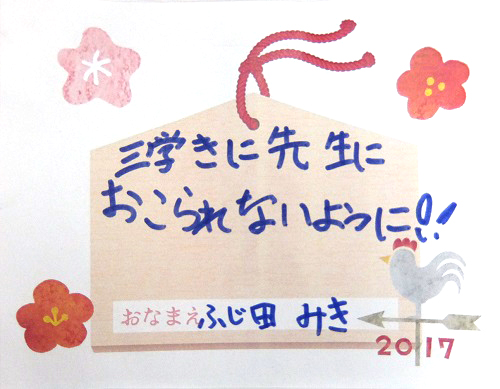 三学きに先生に
おこられないように!!
おなまえ ふじ田 みき
2017